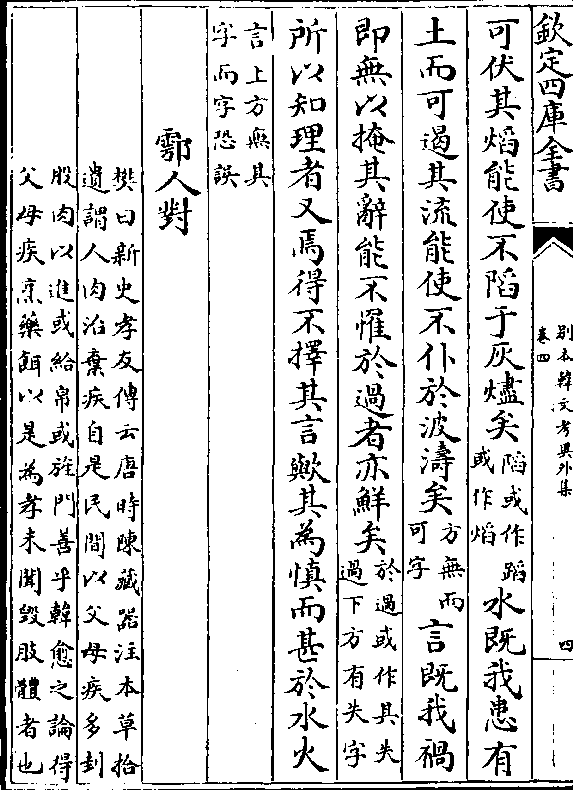 欽定四庫全書
別本韓文考異外集
卷四
四
可伏其熖能使不陷于灰燼矣陷或作蹈或作熖水既我患有
土而可遏其流能使不仆於波濤矣方無而可字言既我禍
即無以掩其辭能不罹於過者亦鮮矣於過或作其失過下方有失字
所以知理者又焉得不擇其言歟其為慎而甚於水火
言上方無其字而字恐誤
鄠人對
樊曰新史孝友傳云唐時陳藏器注本草拾
遺謂人肉治棄疾自是民間以父母疾多刲
股肉以進或給帛或旌門善乎韓愈之論得
父母疾烹藥餌以是為孝未聞毀肢體者也